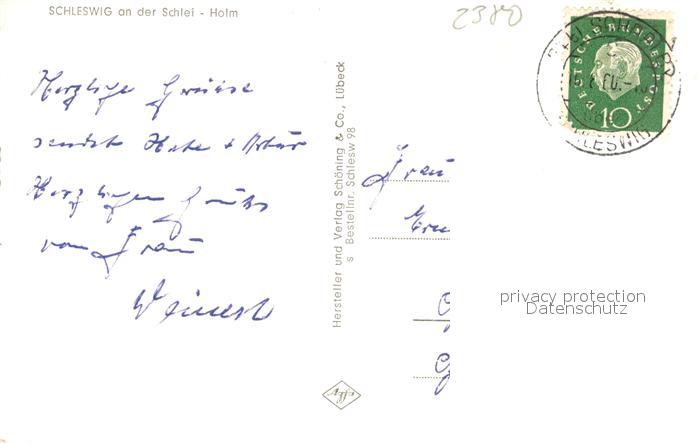 SCHLESWIG an der Schlei - Holm
2380
Herzliche Grüsse
sendet + Artur
Herzlichen Gruß
von Frau
Weinert
Hersteller und Verlag Schöning & Co., Lübeck
s Bestellnr. Schlesw 98
Agfa
DEUTSCHE BUNDESPOST
10
SCHLESWIG
Frau
G
G
privacy protection
Datenschutz